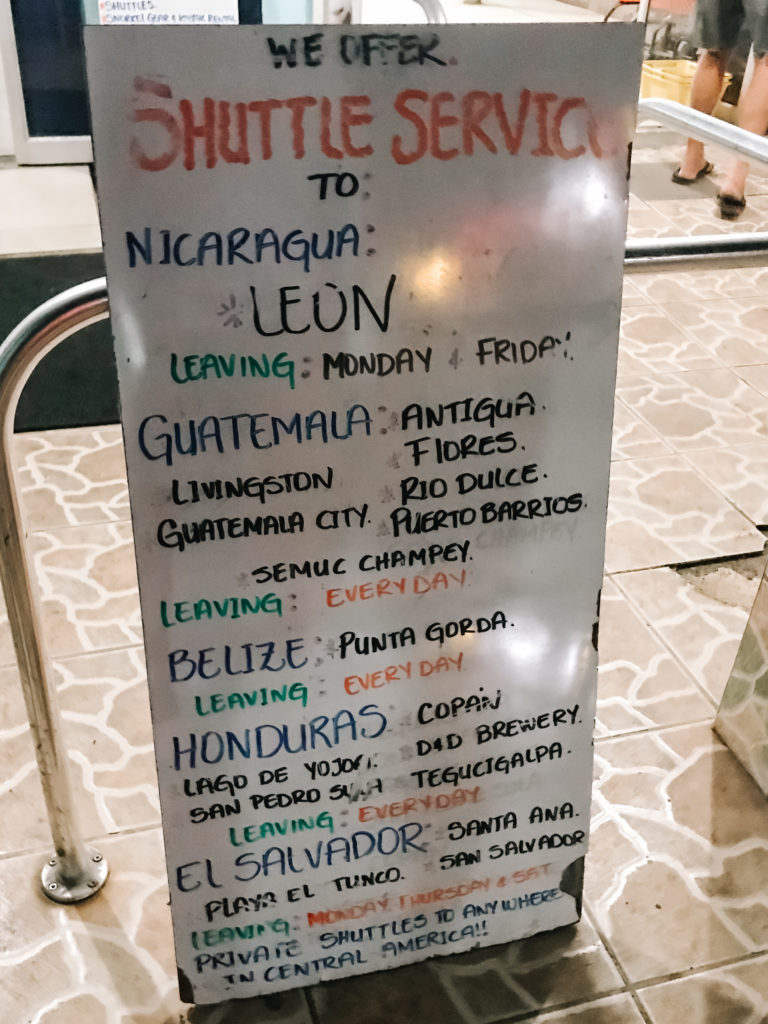 SHUTTLES
SNORKEL GEAR & KAYAK RENTAL
WE OFFER.
SHUTTLE SERVICE
TO:
NICARAGUA:
*LEÓN
LEAVING: MONDAY & FRIDAY.
GUATEMALA: ANTIGUA.
FLORES.
LIVINGSTON RIO DULCE.
GUATEMALA CITY. PUERTO BARRIOS.
CHAMPEY
SEMUC CHAMPEY.
LEAVING: EVERYDAY
BELIZE: PUNTA GORDA.
LEAVING: EVERYDAY
HONDURAS COPAN
LAGO DE YOJOA: D&D BREWERY.
SAN PEDRO SULA TEGUCIGALPA.
LEAVING: EVERYDAY
EL SALVADOR: SANTA ANA.
PLAYA EL TUNCO. SAN SALVADOR
LEAVING: MONDAY, THURSDAY & SAT
PRIVATE SHUTTLES TO ANYWHERE
IN CENTRAL AMERICA!!